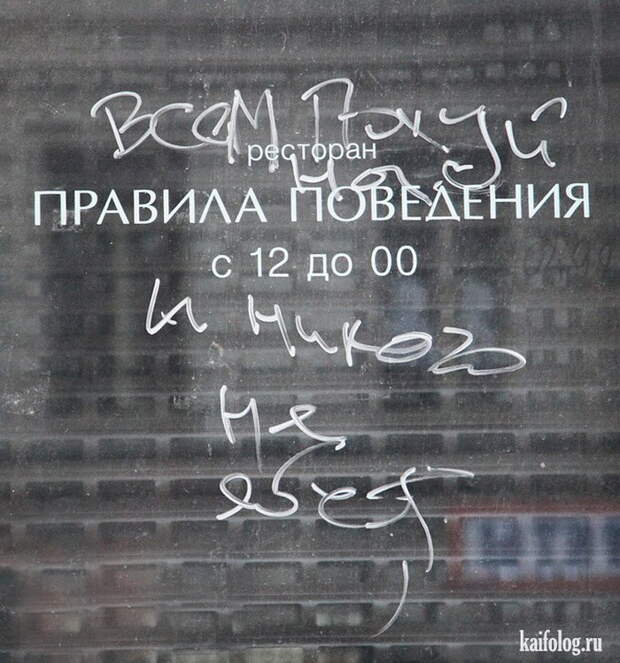 ВСЕМ Похуй
ресторан
На хуй
ПРАВИЛА ПОВЕДЕНИЯ
с 12 до 00
и никого
не
ебет
kaifolog.ru